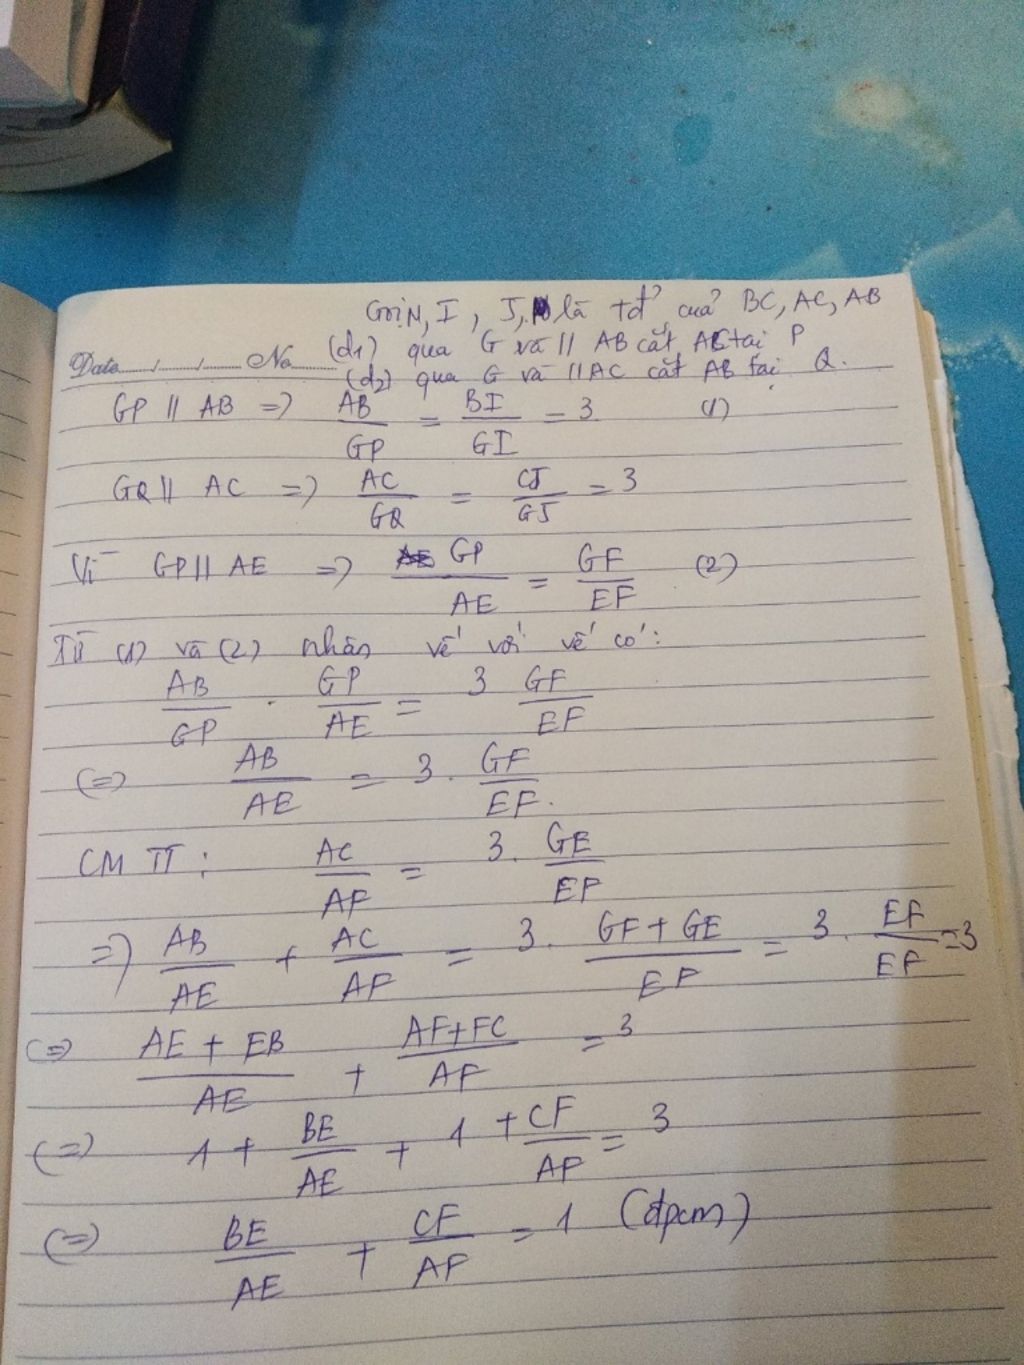 Gọi N, I, J, là tđ của BC, AC, AB
(d1) qua G và // AB cắt AC tại P
Date...../......./....... No.........
(d2) qua G và // AC cắt AB tại Q.
GP // AB => AB/GP = BI/GI = 3 (1)
GQ // AC => AC/GQ = CJ/GJ = 3
Vì GP // AE => GP/AE = GF/EF (2)
Từ (1) và (2) nhân vế với vế có:
AB/GP . GP/AE = 3 GF/EF
(=) AB/AE = 3. GF/EF.
CM TT: AC/AF = 3. GE/EF
=> AB/AE + AC/AF = 3. GF + GE/EF = 3. EF/EF = 3
(=) AE + EB/AE + AF+FC/AF = 3
(=) 1 + BE/AE + 1 + CF/AF = 3
(=) BE/AE + CF/AF = 1 (đpcm)